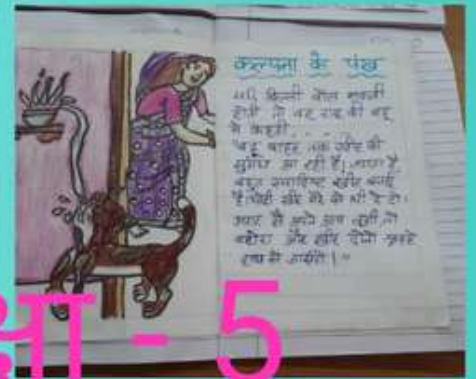 कल्पना के पंख
यदि बिल्ली बोल सकती
होती तो वह रामू की बहू
से कहती . . .
"बहू बाहर तक खीर की
सुगंध आ रही है। लगता है
बहुत स्वादिष्ट खीर बनाई
है। थोड़ी खीर मेरे को भी दे दो।
कटोरा और खीर दोनों
हाथ से जाएंगे।"
क्षा - 5